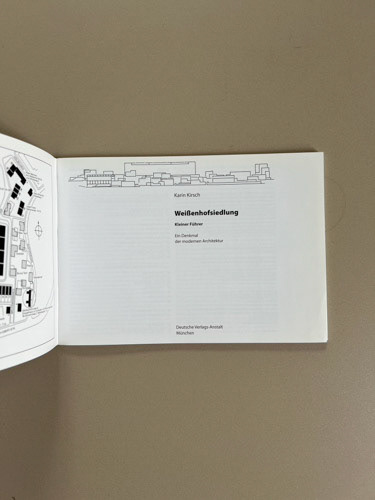 Karin Kirsch
Weißenhofsiedlung
Kleiner Führer
Ein Denkmal
der modernen Architektur
Deutsche Verlags-Anstalt
München